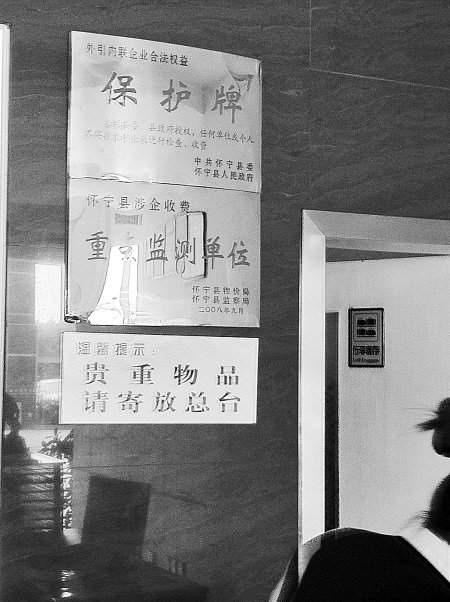 外引内联企业合法权益
保护牌
未经县委、县政府授权，任何单位或个人
不得
进行检查、收费
中共怀宁县委
怀宁县人民政府
怀宁县涉企收费
重点监测单位
怀宁县物价局
怀宁县监察局
二00八年九月
温馨提示：
贵重物品
请寄放总台